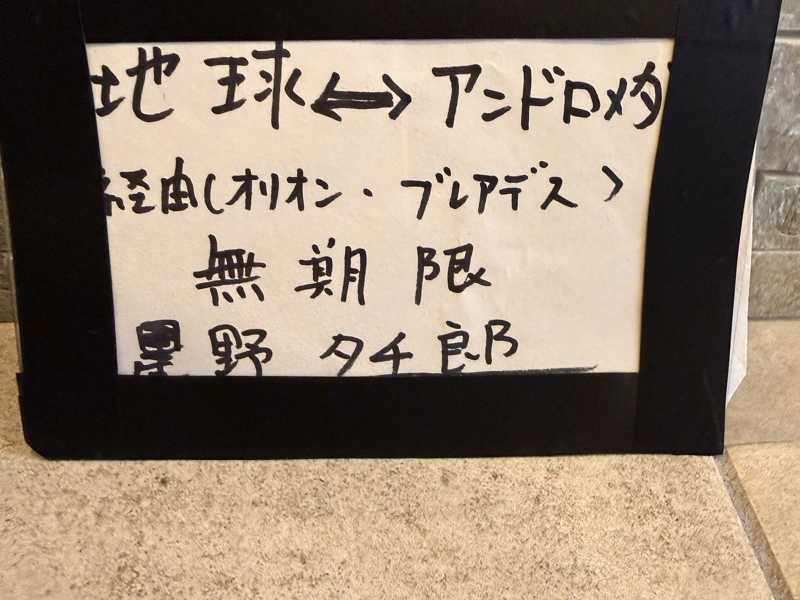 地球⇔アンドロメダ
経由(オリオン・プレアデス)
無期限
星野 タチ郎